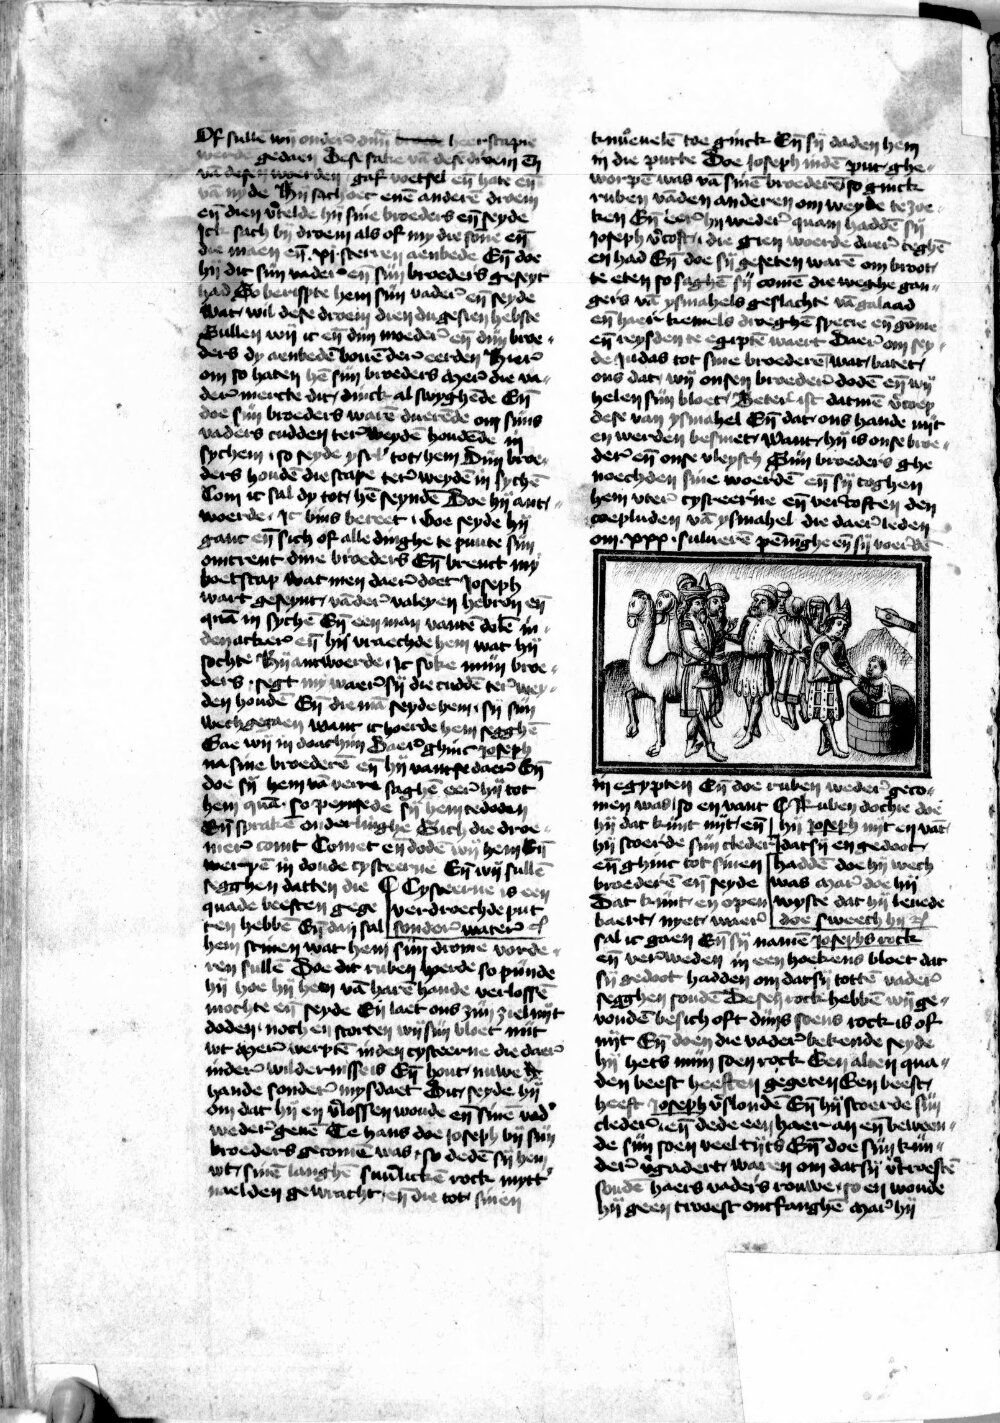 Of sullē wij onder̄ dijn heerscapie
werdē gedaen Dese sake vā dese droem eñ
vā desen woerden gaf voetsel eñ hate eñ
vā nyde Hij sach oec enē anderē droem
eñ dien v̄telde hij sine broeders eñ seyde
Ick sach bij droem als of my die sōne eñ
die maen eñ .xj. sterren aenbede Eñ doe
hij dit sijn vader eñ sijn broeders geseyt
had So berispte hem sijn vader̄ eñ seyde
Wat wil dese droem dien du gesien hebste
Sullen wij ic eñ dijn moeder̄ eñ dijn broe=
ders dy aenbedē bouē der eerden Hier̄
om so haten hē sijn broeders Mer̄ die va=
der̄ mercte dit dinck al swyghēde Eñ
doe sijn broeders warē duerēde om sijns
vaders cudden ter̄ weydē houdēde in
sychem so seyde ysrl' tot hem Dijn broe=
ders houdē die scape ter̄ weydē in sychē
Com ic sal dy tot hē seyndē Doe hij ant=
woerde Ic bins bereet doe seyde hij
ganc eñ sich of alle dinghe te punte sijn
omtrent dine broeders Eñ brenct my
boetscap wat men daer̄ doet Joseph
wart geseynt vāder̄ valeyen hebron eñ
quā in sychē Eñ een man vantē dolē in
den acker eñ hij vraechde hem wat hij
sochte Hij antwoerde Ic sōke mijn broe=
ders segt my waer̄ sij die cuddē ter̄ wey=
den houdē Eñ die mā seyde hem sij sijn
wech gegaen want ic hoerde hem segghē
Gae wij in doachim Daer̄ ghinc Joseph
na sine broederē eñ hij vantse daer̄ Eñ
doe sij hem vā verre saghē eer̄ hij tot
hem quā so peynsede sij hem te doden
Eñ sprakē onderlinghe Sich die droe=
mer̄ comt Comet en dodē wij hem Eñ
werpē in doude cysteerne Eñ wij sullē
segghen datten die C Cysteerne is een
quade beesten gege verdroechde put
ten hebbē Eñ dan sal sonder̄ water̄
hem scinen wat hem sijn drome vorde=
ren sullē Doe dit ruben hoerde so pijnde
hij hoe hij hem vā harē hande verlossē
mochte eñ seyde Eñ laet ons zijn ziel nijt
doden noch en storten wij sijn bloet nijt
wt Mer̄ werptē in den cysteerne die daer̄
inder̄ wildernisseis Eñ hout nuwe
hande sonder̄ mysdaet Dit seyde hij
om dat hij en v̄lossen woude eñ sinē vad'
weder̄ geuē Te hans doe Joseph bij sijn
broeders gecomē was so dedē sij hem
wt sinē langhē rock mytt
naelden gewracht eñ die tot sinen
knuoeuelē toe ginck Eñ sij daden hem
in die putte Doe Joseph indē put ghe=
worpē was vā sinē broederē so ginck
ruben vāden anderen om weyde te zoe=
ken Eñ eer̄ hij weder̄ quam haddē sij
Joseph v̄coft die gien woerde daer̄ teghē
en had Eñ doe sij geseten warē om broot
te eten so saghē sij comē die weghe gan=
gers vā ysmahels geslachte vā galaad
eñ haer kemels droeghē specie eñ gōme
eñ reysden te egiptē waert Daer̄ om sey=
de Judas tot sine broederē wat batet
ons dat wij onsen broeder̄ dodē eñ wij
helen sijn bloet Beter̄ ist datmē v̄coep
dese van ysmahel Eñ dat ons hande nijt
en werden besmet want hij is onse broe=
der̄ eñ onse vleysch Sijn broeders ghe
noechden sine woerdē eñ sij toghen
hem vter̄ cysteerne eñ vercoften den
coepluden vā ysmahel die daer̄ leden
om .xxx. siluerē pēnighe eñ sij voerdē
in egypten Eñ doe ruben weder̄ geco=
men was so en vant C Ruben dochte doe
hij dat kijnt nijt eñ hij Joseph nijt en vāt
hij scoerde sijn cleder̄ dat sij en gedoot
eñ ghinc tot sinen haddē doe hij wech
broederē eñ seyde was Mar̄ doe hij
Dat kijnt en open wyste dat hij leuede
baert nyet waer̄ doe sweech hij
sal ic gaen Eñ sij namē Josephs rock
eñ verweden in een hoekens bloet dat
sij gedoot hadden om datsij tottē vader̄
segghen soudē Desen rock hebbē wij ge=
vondē besich oft dijns soens rock is of
nijt Eñ doen die vader̄ bekende seyde
hij hets mijn soen rock Een alten qua=
den beest heeften gegeten Een beest
heeft Joseph v̄slondē Eñ hij scoerde sijn
cleder̄ eñ dede een haer an eñ beween=
de sijn soen veel tijts Eñ doe sijn kijn=
der̄ v̄gadert waren om datsij v̄troestē
soudē haers vaders rouwe so en woude
hij geen troest ontfanghē Mar̄ hij